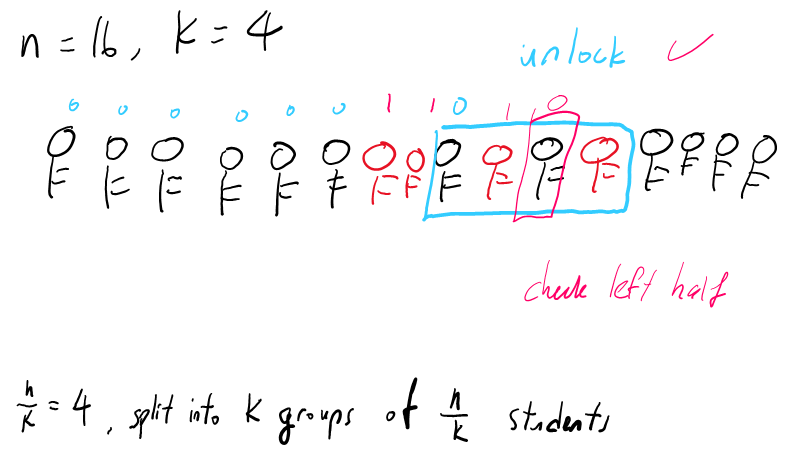 n = 16, k = 4
unlock ✓
0 0 0 0 0 0 1 1 0 1 0
check left half
n/k = 4, split into k groups of n/k students